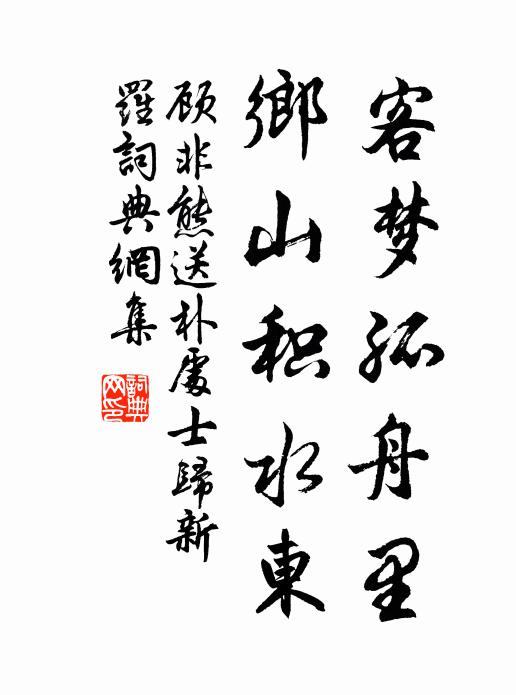 客梦孤舟里
鄉山积水東
顾非熊送朴處士歸新
羅詞典網集
詞典网印